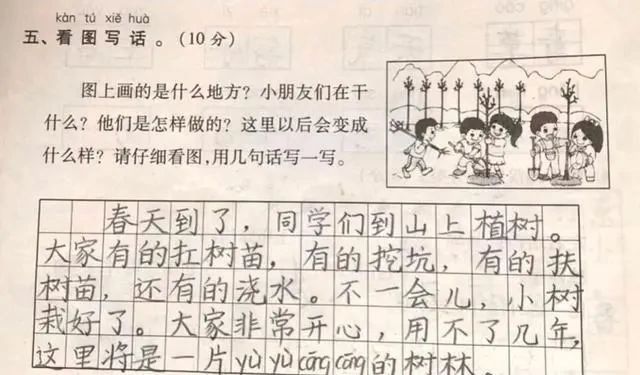 kàn tú xiě huà
五、看图写话。(10分)
图上画的是什么地方？小朋友们在干
什么？他们是怎样做的？这里以后会变成
什么样？请仔细看图，用几句话写一写。
春天到了，同学们到山上植树。
大家有的扛树苗，有的挖坑，有的扶
树苗，还有的浇水。不一会儿，小树
栽好了。大家非常开心，用不了几年，
这里将是一片yù yù cōng cōng的树林。